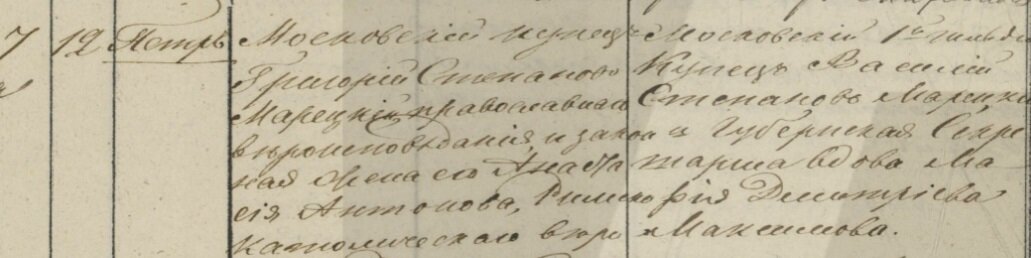 7 12 Петръ
Московскій купецъ
Григорій Степановъ
Марецкій православнаго
вѣроисповѣданія, и закон
ная жена его Анаста
сія Антонова, Римско
Католическаго вѣро
Московскій 1й гильдіи
Купецъ Василій
Степановъ Марецкій
и Губернская Секре
тарша вдова Ма
рія Димитріева
Максимова.